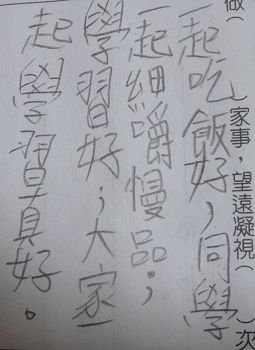 做( )家事，望遠凝視( )次
一起吃飯好，同學
一起細嚼慢品；
學習好；大家一
起學習真好。